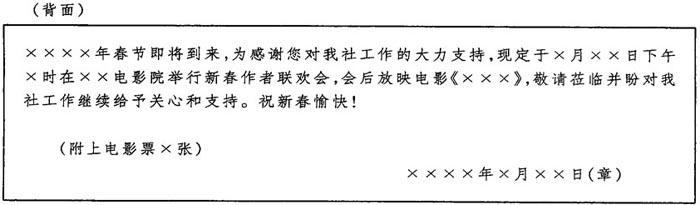 (背面)
××××年春节即将到来,为感谢您对我社工作的大力支持,现定于×月××日下午
×时在××电影院举行新春作者联欢会,会后放映电影《×××》,敬请莅临并盼对我
社工作继续给予关心和支持。祝新春愉快!
(附上电影票×张)
××××年×月××日(章)